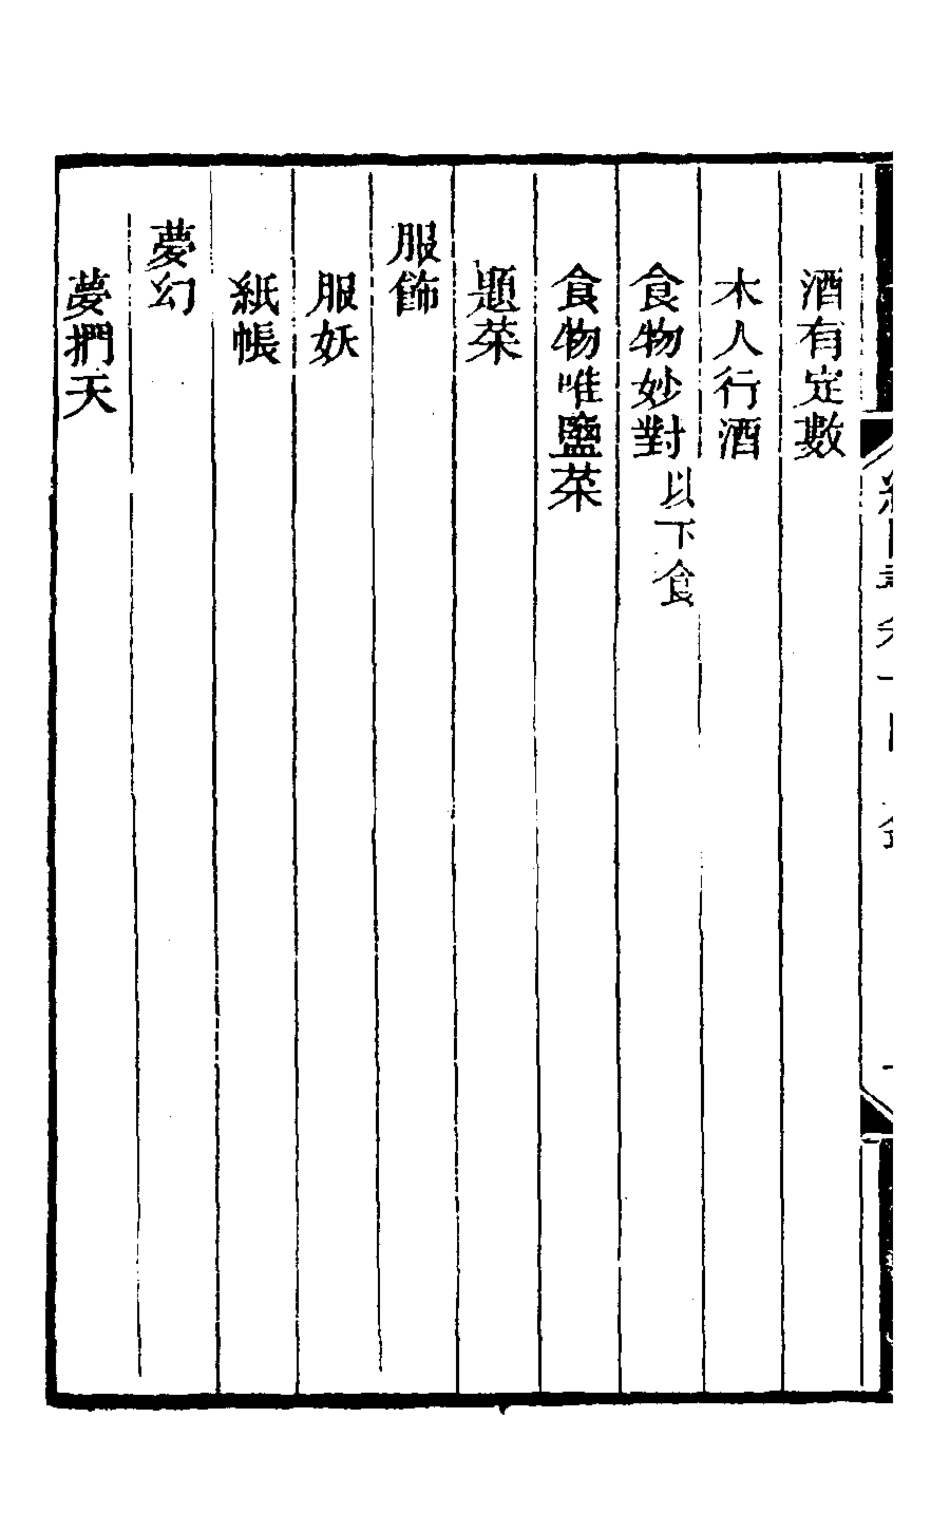 酒有定數
木人行酒
食物妙對以下食
食物唯鹽菜
題菜
服飾
服妖
紙帳
夢幻
夢捫天